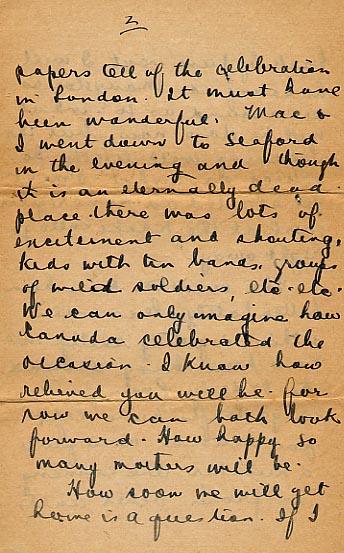 2
papers tell of the celebration
in London. It must have
been wonderful. Mac &
I went down to Seaford
in the evening and though
it is an eternally dead
place there was lots of
excitement and shouting,
kids with tin bands, groups
of wild soldiers, etc. etc.
We can only imagine how
Canada celebrated the
occasion. I know how
relieved you will be. for
now we can both look
forward. How happy so
many mothers will be.
How soon we will get
home is a question. If I